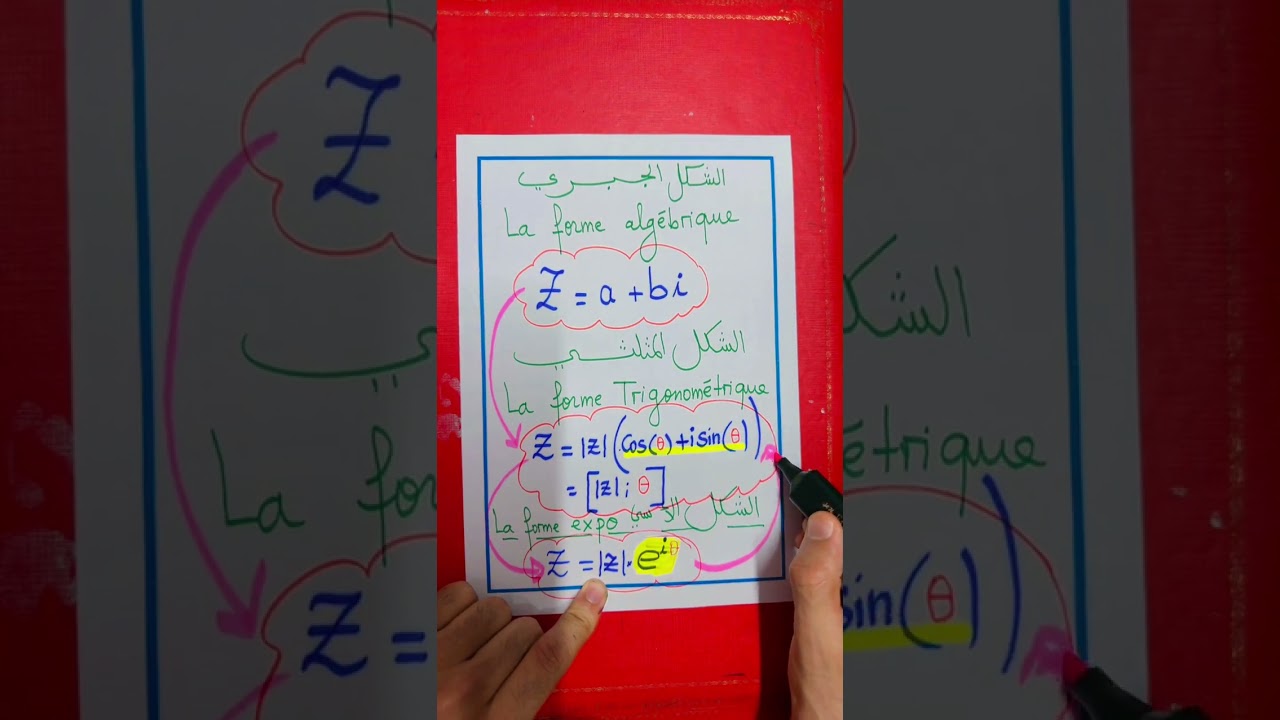 الشكل الجبري
La forme algébrique
Z = a + bi
الشكل المثلثي
La forme Trigonométrique
Z = |Z| (cos(θ) + i sin(θ))
= [|Z| ; θ]
La forme expo الشكل الأسي
Z = |Z| . e^{iθ}